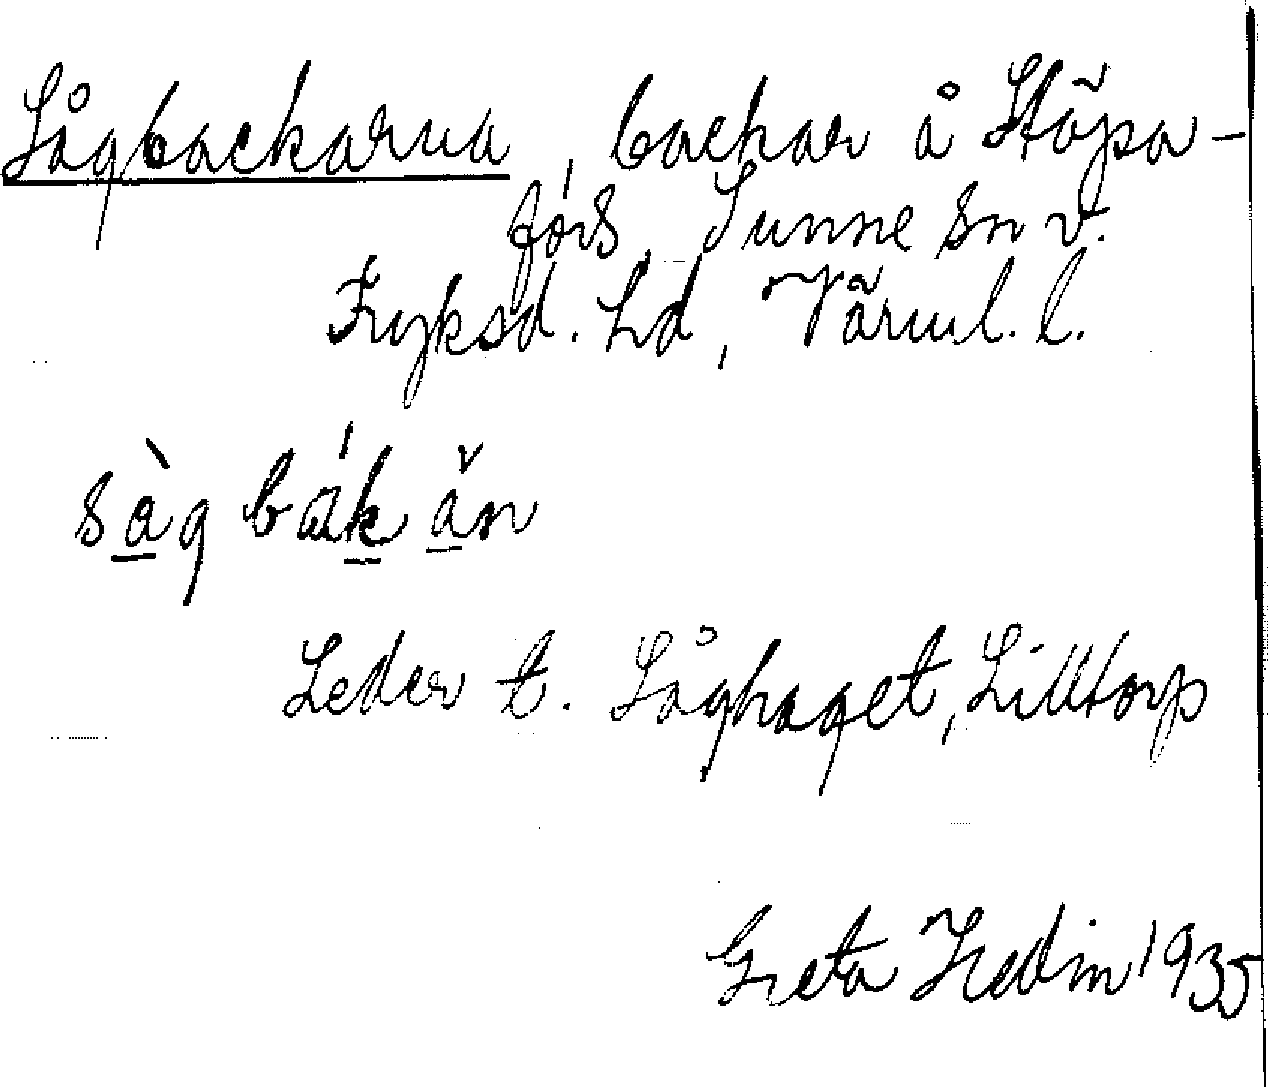 Sågbackarna, backar å Stöpa-
fors, Sunne sn v.
Fryksd. hd, Värml. l.
sàg bák ăn
Leder t. Såghaget, Lilltorp
Greta Hedin 1935